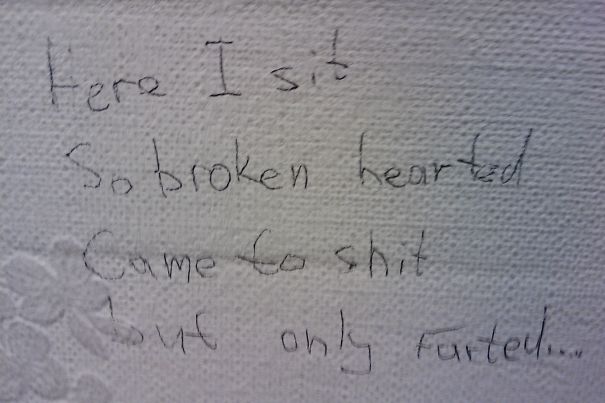 Here I sit
So broken hearted
Came to shit
but only Farted....